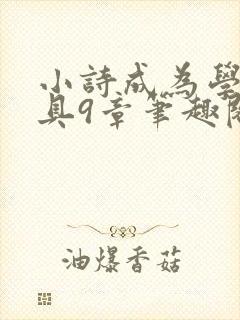 小詩成為學
具9章筆趣閣
油爆香菇